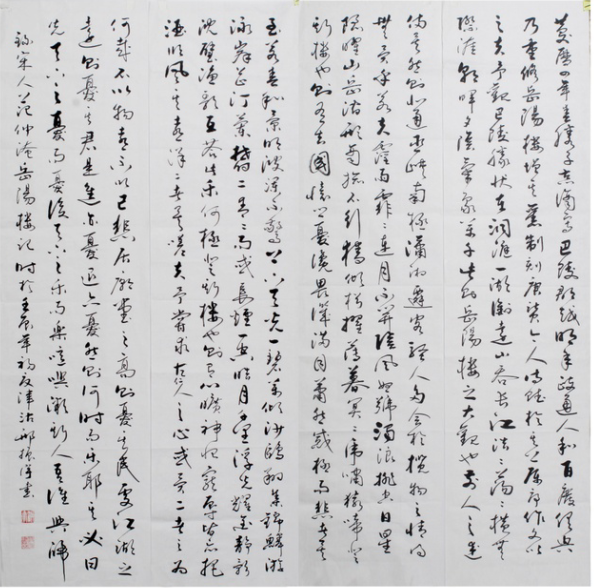 慶曆四年春滕子京謫守巴陵郡越明年政通人和百廢俱興
乃重修岳陽樓增其舊制刻唐賢今人詩賦於其上屬予作文以
記之予觀夫巴陵勝狀在洞庭一湖銜遠山吞長江浩浩蕩蕩橫無
際涯朝暉夕陰氣象萬千此則岳陽樓之大觀也前人之述
備矣然則北通巫峽南極瀟湘遷客騷人多會於此覽物之情得
無異乎若夫霪雨霏霏連月不開陰風怒號濁浪排空日星
隱曜山岳潛形商旅不行檣傾楫摧薄暮冥冥虎嘯猿啼登
斯樓也則有去國懷鄉憂讒畏譏滿目蕭然感極而悲者矣
至若春和景明波瀾不驚上下天光一碧萬頃沙鷗翔集錦鱗游
泳岸芷汀蘭郁郁青青而或長煙一空皓月千里浮光耀金靜影
沈璧漁歌互答此樂何極登斯樓也則有心曠神怡寵辱皆忘把
酒臨風其喜洋洋者矣嗟夫予嘗求古仁人之心或異二者之為
何哉不以物喜不以己悲居廟堂之高則憂其民處江湖之
遠則憂其君是進亦憂退亦憂然則何時而樂耶其必曰
先天下之憂而憂後天下之樂而樂噫微斯人吾誰與歸
錄宋人范仲淹岳陽樓記時於壬辰年初夏津沽